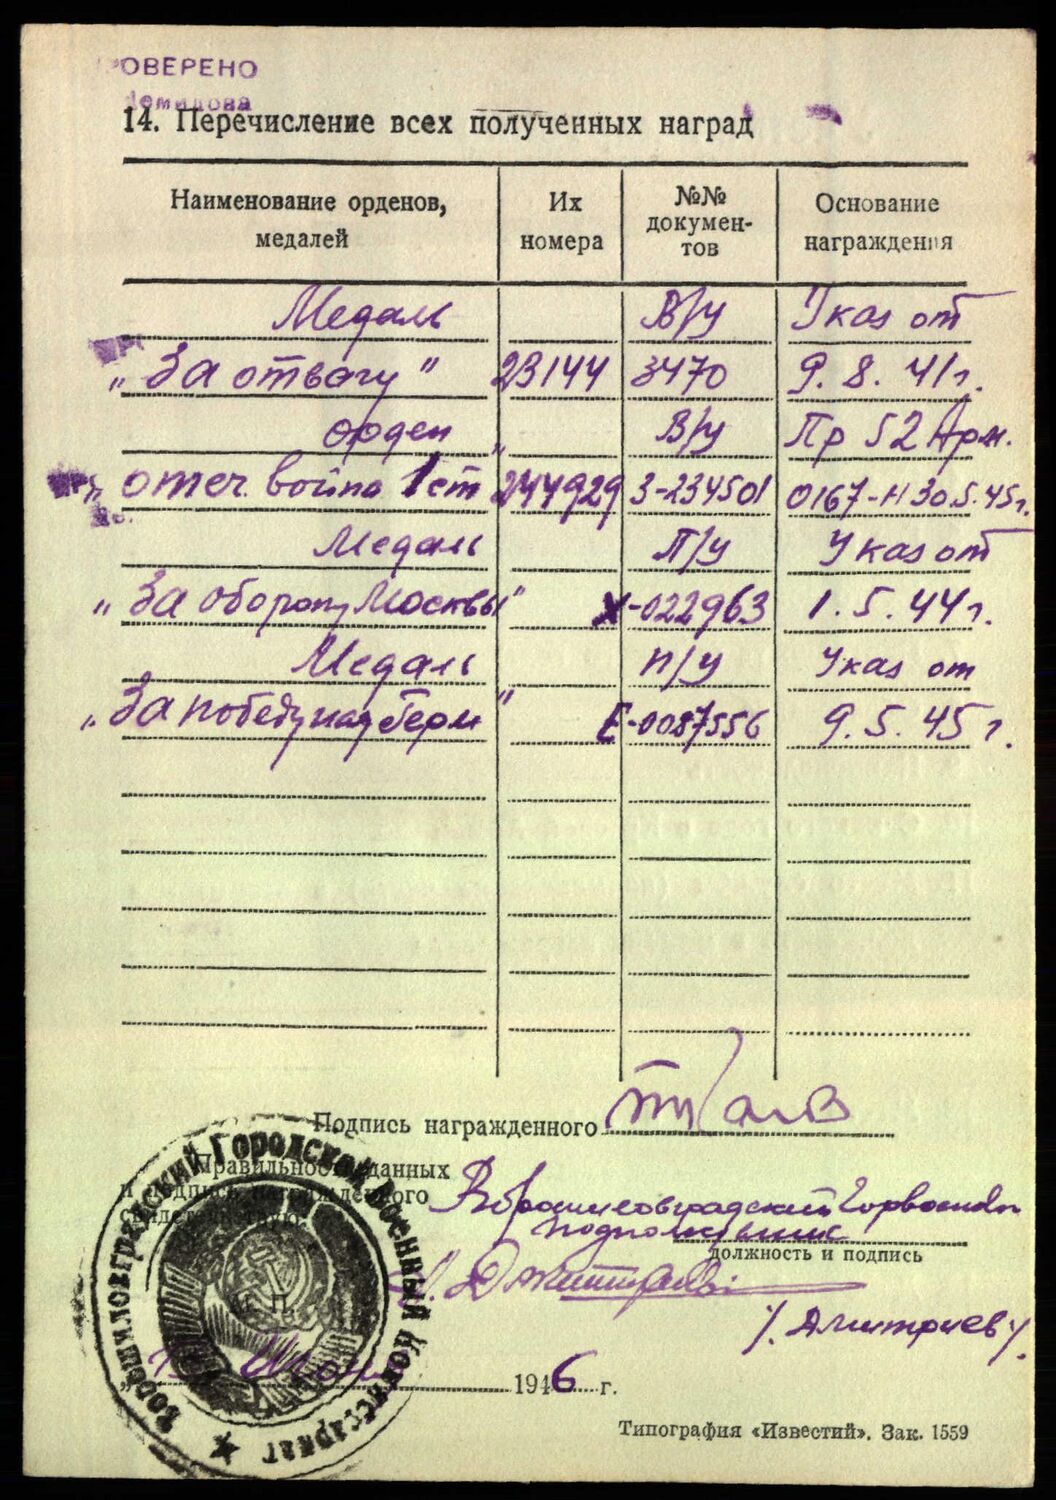 ПРОВЕРЕНО
Демидова
14. Перечисление всех полученных наград
Наименование орденов, медалей
Их номера
№№ докумен-тов
Основание награждения
Медаль В/у Указ от
„За отвагу" 23144 3470 9. 8. 41г.
орден В/у Пр 52 Арм.
„отеч. война 1 ст" 244929 З-234501 0167-Н 30.5.45г.
Медаль П/у Указ от
„За оборону Москвы" Х-022963 1. 5. 44г.
Медаль П/у Указ от
„За победу над Герм" Е-0087556 9. 5. 45 г.
Подпись награжденного
Правильность данных
и подпись награжденного
свидетельствую:
Ворошиловградский Горвоенком
подполковник
должность и подпись
/Дмитриев/
1946 г.
Ворошиловградский Городской Военный Комиссариат
Типография «Известий». Зак. 1559